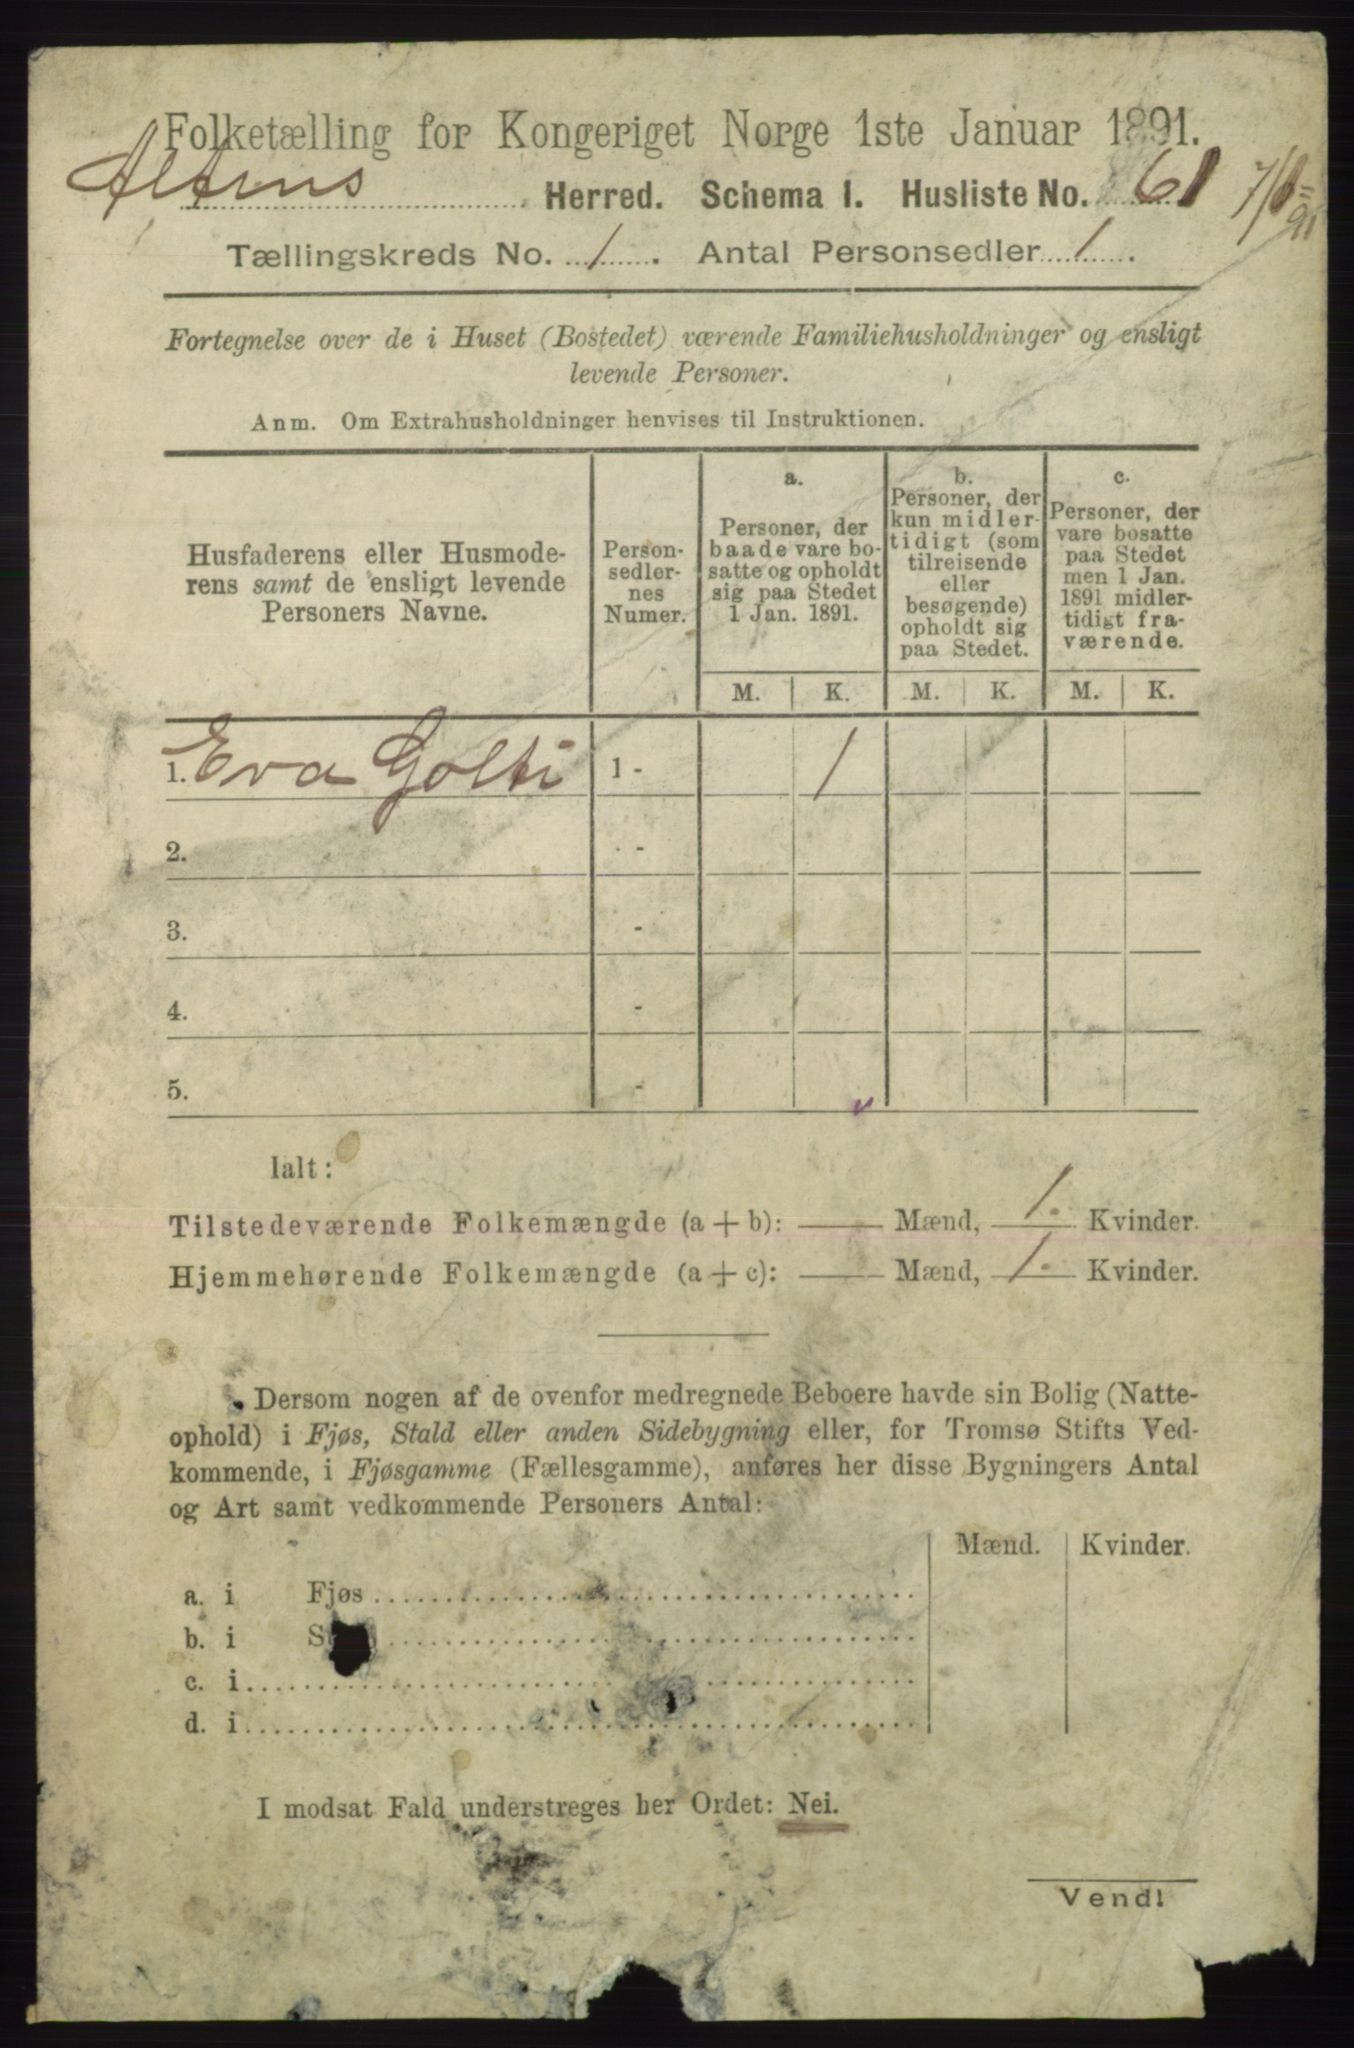 Folketælling for Kongeriget Norge 1ste Januar 1891.
Altens Herred. Schema I. Husliste No. 61 7/1 = 91
Tællingskreds No. 1. Antal Personsedler 1.
Fortegnelse over de i Huset (Bostedet) værende Familiehusholdninger og ensligt
levende Personer.
Anm. Om Extrahusholdninger henvises til Instruktionen.
Husfaderens eller Husmode-
rens samt de ensligt levende
Personers Navne.
Person-
sedler-
nes
Numer.
a.
Personer, der
baade vare bo-
satte og opholdt
sig paa Stedet
1 Jan. 1891.
b.
Personer, der
kun midler-
tidigt (som
tilreisende
eller
besøgende)
opholdt sig
paa Stedet.
c.
Personer, der
vare bosatte
paa Stedet
men 1 Jan.
1891 midler-
tidigt fra-
værende.
M. K. M. K. M. K.
1. Eva Golti 1 - 1
2. -
3. -
4. -
5. -
Ialt:
Tilstedeværende Folkemængde (a + b): — Mænd, 1. Kvinder.
Hjemmehørende Folkemængde (a + c): — Mænd, 1. Kvinder.
Dersom nogen af de ovenfor medregnede Beboere havde sin Bolig (Natte-
ophold) i Fjøs, Stald eller anden Sidebygning eller, for Tromsø Stifts Ved-
kommende, i Fjøsgamme (Fællesgamme), anføres her disse Bygningers Antal
og Art samt vedkommende Personers Antal:
Mænd. Kvinder.
a. i Fjøs
b. i S
c. i
d. i
I modsat Fald understreges her Ordet: Nei.
Vend!